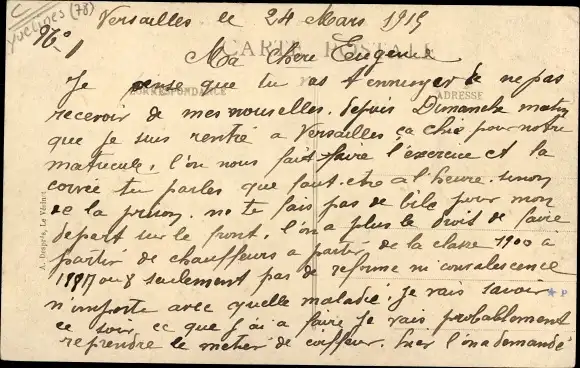 Yvelines (78)
N° 1
Versailles le 24 Mars 1915
CARTE POSTALE
Ma Chère Eugénie
CORRESPONDANCE
ADRESSE
Je pense que tu as t'ennuyer de ne pas
recevoir de mes nouvelles. depuis Dimanche matin
que je suis rentré a Versailles ça chie pour notre
matricule, l'on nous fait faire l'exercice et la
corvée tu parles que faut etre a l'heure sinon
de la prison. ne te fais pas de bile pour mon
depart sur le front, l'on a plus le droit de faire
partir de chauffeurs a partir de la classe 1900 a
seulement pas de reforme ni convalescence
n'importe avec quelle maladie, je vais savoir
ce soir, ce que j'ai a faire je vais probablement
reprendre le metier de coiffeur. hier l'on a demandé
A. Desprès, Le Vésinet